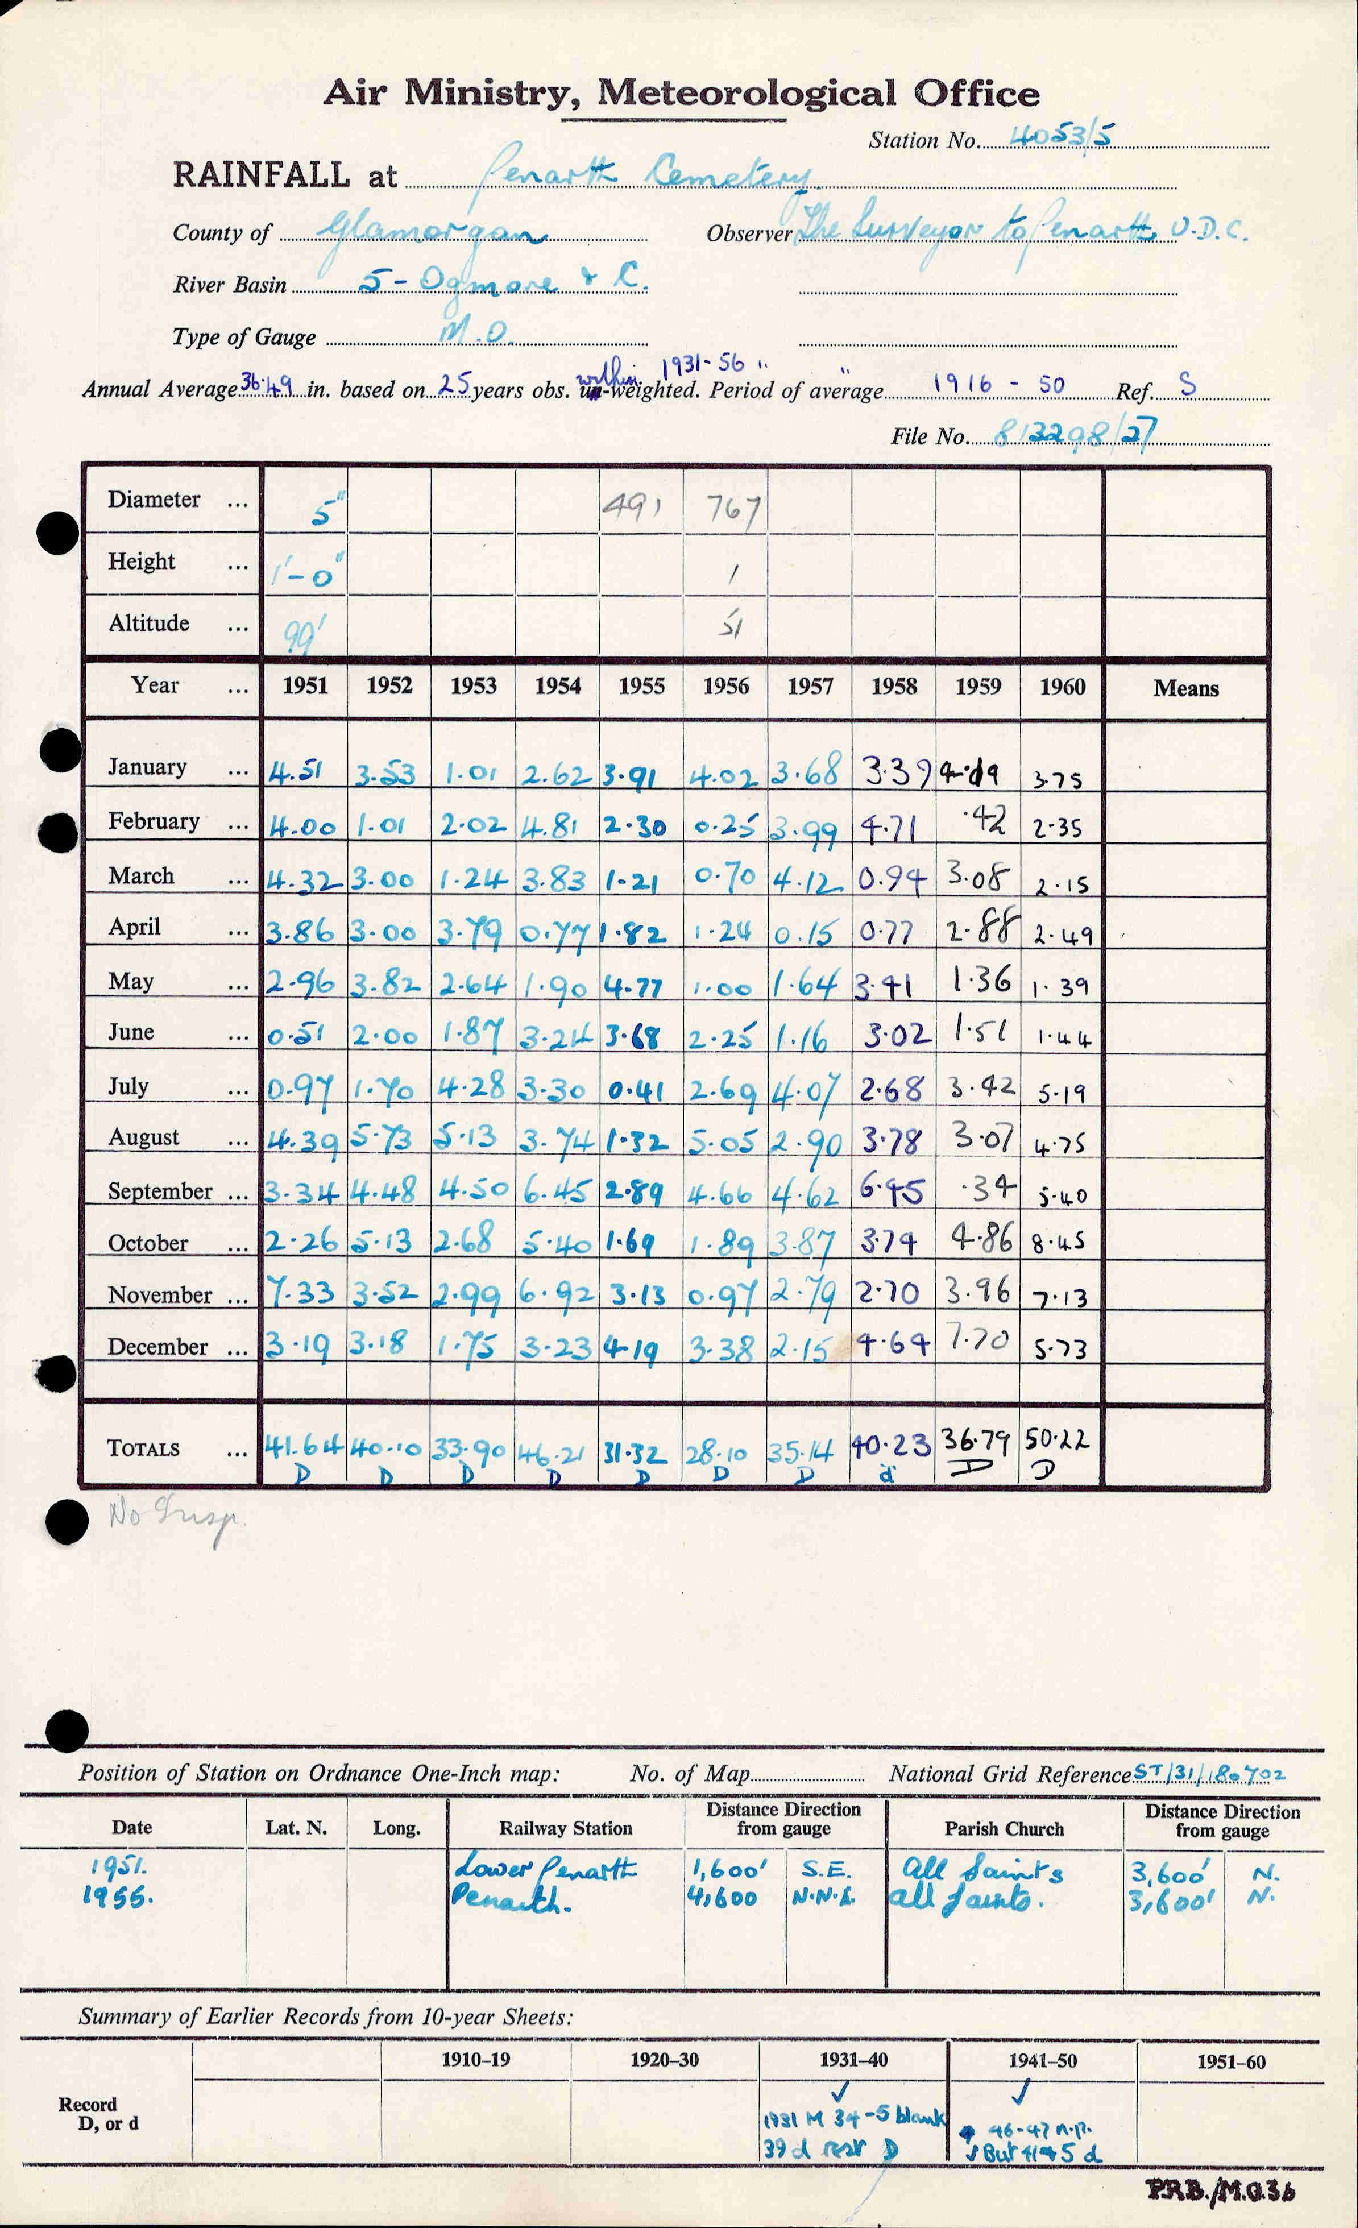 Air Ministry, Meteorological Office
Station No. 4053/5
RAINFALL at Penarth Cemetery
County of Glamorgan Observer The Surveyor to Penarth U.D.C.
River Basin 5 - Ogmore & C.
Type of Gauge M.O.
within 1931-56 "
Annual Average 36.49 in. based on 25 years obs. un-weighted. Period of average 1916 - 50 Ref. S
File No. 813298/27
Diameter ... 5" 491 767
Height ... 1'-0" 1
Altitude ... 99' 51
Year ... 1951 1952 1953 1954 1955 1956 1957 1958 1959 1960 Means
January ... 4.51 3.53 1.01 2.62 3.91 4.02 3.68 3.39 4.19 3.75
February ... 4.00 1.01 2.02 4.81 2.30 0.25 3.99 4.71 .42 2.35
March ... 4.32 3.00 1.24 3.83 1.21 0.70 4.12 0.94 3.08 2.15
April ... 3.86 3.00 3.79 0.77 1.82 1.24 0.15 0.77 2.88 2.49
May ... 2.96 3.82 2.64 1.90 4.77 1.00 1.64 3.41 1.36 1.39
June ... 0.51 2.00 1.87 3.24 3.68 2.25 1.16 3.02 1.51 1.44
July ... 0.97 1.70 4.28 3.30 0.41 2.69 4.07 2.68 3.42 5.19
August ... 4.39 5.73 5.13 3.74 1.32 5.05 2.90 3.78 3.07 4.75
September ... 3.34 4.48 4.50 6.45 2.89 4.66 4.62 6.45 .34 5.40
October ... 2.26 5.13 2.68 5.40 1.69 1.89 3.87 3.74 4.86 8.45
November ... 7.33 3.52 2.99 6.92 3.13 0.97 2.79 2.70 3.96 7.13
December ... 3.19 3.18 1.75 3.23 4.19 3.38 2.15 4.64 7.70 5.73
TOTALS ... 41.64 40.10 33.90 46.21 31.32 28.10 35.14 40.23 36.79 50.22
D D D D D D D d D D
No Insp.
Position of Station on Ordnance One-Inch map: No. of Map National Grid Reference ST/31/180702
Date Lat. N. Long. Railway Station Distance Direction from gauge Parish Church Distance Direction from gauge
1951. Lower Penarth 1,600' S.E. All Saints 3,600' N.
1955. Penarth. 4,600 N.N.E. All Saints. 3,600' N.
Summary of Earlier Records from 10-year Sheets:
1910–19 1920–30 1931–40 1941–50 1951–60
Record D, or d
✓ ✓
1931 M 34-5 blank
39 d rest D
46-47 n.p.
But 44-5 d
P.R.B./M.O.36